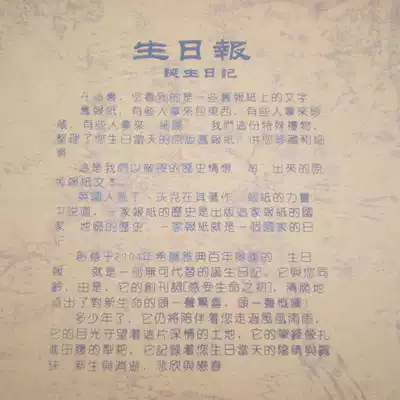 生日報
誕生日記
您看到的是一些舊報紙上的文字
舊報紙，有些人拿來包東西，有些人拿來珍
藏，有些人拿來 我們這份特殊禮物，
整理了您生日當天的原版舊報紙，供您珍藏和細
這是我們以敬畏的歷史情懷 出來的原
報紙文本。
英國人 沃克在其著作 報紙的力量
中說道，一家報紙的歷史是出版這家報紙的國
家 的歷史，一家報紙就是一個國家的日
創意于2004年希臘雅典百年 的 生日
報 就是一部無可代替的誕生日記。它與您同
齡，由是，它的創刊詞[感受生命之初]，清晰地
道出了對新生命的頭一聲驚喜，頭一聲慨嘆！
多少年了，它仍將陪伴着您走過風風雨雨，
它的目光守望着這片深情的土地，它的筆鋒像扎
進田隴的犁耙，它記錄着您生日當天的陰晴與
新生與消逝，悲欣與